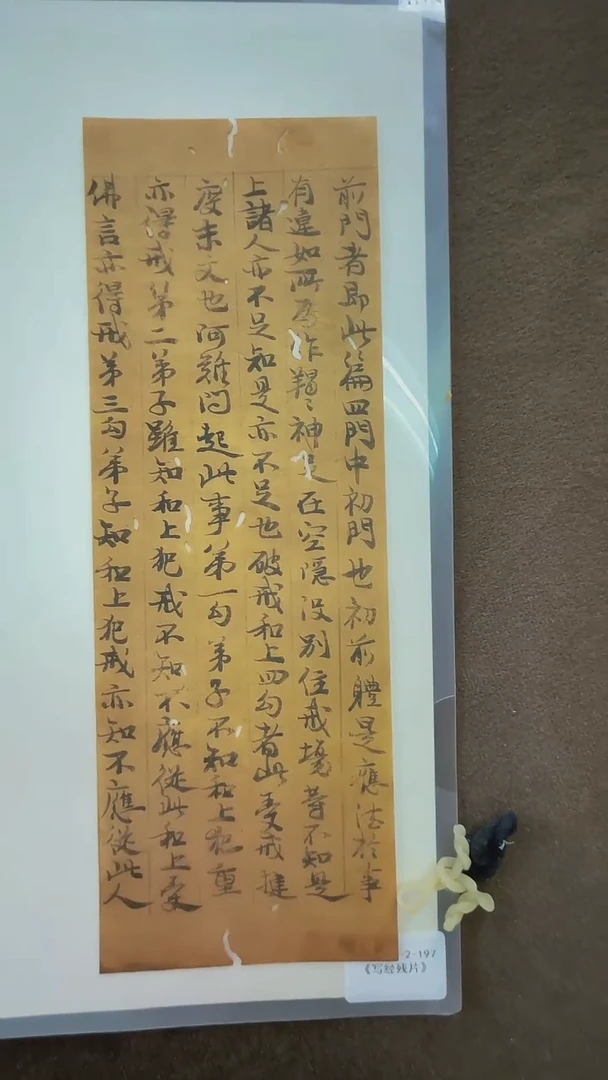 前門者即此篇四門中初門也初前體是應法於事
有違如所為作羯〻神足在空隱没別住戒場等不知是
上諸人亦不足知是亦不足也破戒和上四句者此受戒揵
度末文也阿難問起此事第一句弟子不知和上犯重
亦得戒第二弟子雖知和上犯戒不知不應從此和上受
佛言亦得戒第三句弟子知和上犯戒亦知不應從此人
-2-197
《写经残片》